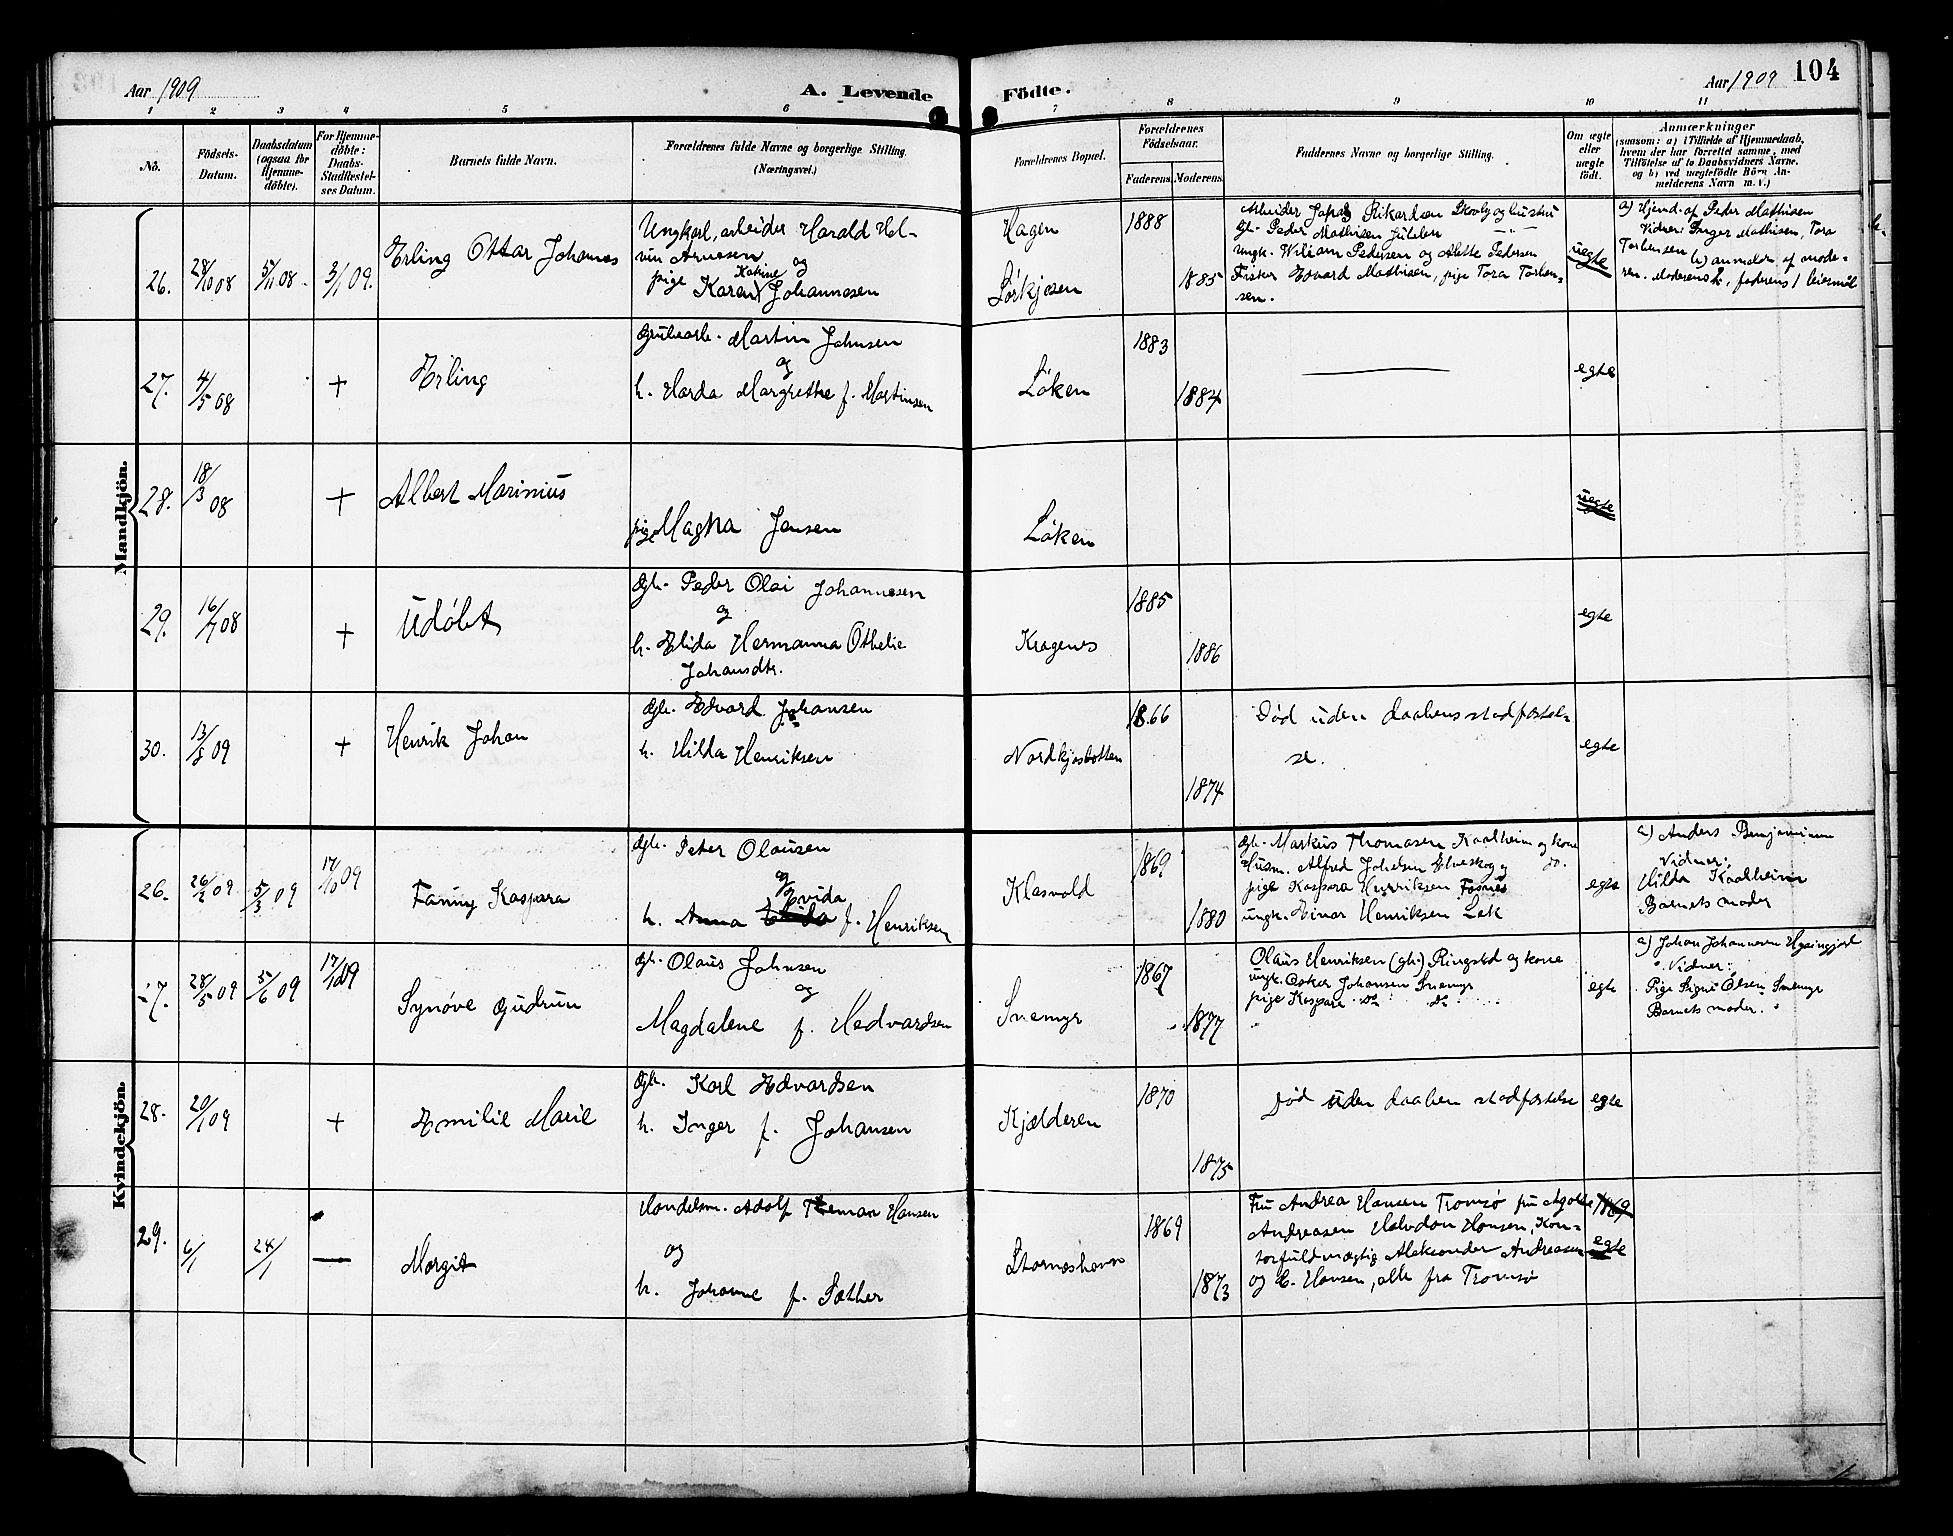 Aar 1909
A. Levende
Födte.
Aar 1909 104
1 2 3 4 5 6 7 8 9 10 11
No.
Födsels-
Datum.
Daabsdatum
(ogsaa for
Hjemme-
döbte).
For Hjemme-
döbte:
Daabs-
Stadfæstel-
ses Datum.
Barnets fulde Navn.
Forældrenes fulde Navne og borgerlige Stilling.
(Næringsvei.)
Forældrenes Bopæl.
Forældrenes
Födselsaar.
Faderens. Moderens.
Faddernes Navne og borgerlige Stilling.
Om ægte
eller
uægte
födt.
Anmærkninger
(saasom: a) i Tilfælde af Hjemmedaab,
hvem der har forrettet samme, med
Tilföielse af to Daabsvidners Navne.
og b) ved uægtefödte Börn An-
melderens Navn m. V.)
Mandkjön.
26. 28/10 08 5/11 08. 3/1 09. Erling Ottar Johannes
Ungkarl, arbeider Harald Hel-
vin Arnesen og
pige Karen Katrine Johannesen
Hagen
Sørkjosen
1888
1885
Arbeider Rikardsen Skovly og hustru
Gb. Peder Mathisen
ungk. Wiliam Pedersen og Alette Pedersen
Fisker Edvard Mathisen, pige Tora Torben-
sen.
uegte
a) Hjemd. af Peder Mathisen
Vidner: Inger Mathisen, Tora
Torbensen b) anmeldr. af mode-
ren. Moderens 2, faderens 1 leiermål
27. 4/5 08 + Erling
Grubearb. Martin Johnsen
og
h. Harda Margrethe f. Martinsen
Løken
1883
1884
egte
28. 18/3 08 + Albert Marinius
pige Magna Jensen
Løken
uegte
29. 16/7 08 + Udøbt
Gb. Peder Olai Johannesen
og
h. Elida Hermanna Othelie
Johansdtr.
Kragenes
1885
1886
egte
30. 13/5 09 + Henrik Johan
Gb. Edvard Johansen
h. Hilda Henriksen
Nordkjosbotten
1866
1874
Død uden daabens stadfæstel-
se.
egte
Kvindekjön.
26. 26/2 09 5/3 09 17/10 09 Fanny Kaspara
Gb. Peter Olausen
og
h. Anna Evida f. Henriksen
Klasvold
1869
1880
Gb. Markus Thomasen Kaalheim og kone
Husm. Alfred Johnsen Elveskog og do.
pige Kaspara Henriksen Fosnes
ungk. Einar Henriksen Lak
egte
a) Anders Benjaminsen
Vidner:
Hilda Kaalheim
Barnets moder
27. 28/5 09 5/6 09 17/10 09 Synøve Gudrun
Gb. Olaus Johnsen
og
Magdalene f. Hedvardsen
Snemyr
1867
1877
Olaus Henriksen (gb.) Ringstad og kone
ungk. Oskar Johansen Snemyr
pige Kaspara do do
egte
a) Johan Johannesen
Vidner:
Pige Signe Olsen Snemyr
Barnets moder.
28. 20/1 09 + Emilie Marie
Gb. Karl Edvardsen
h. Inger f. Johansen
Kjælderen
1870
1875
Død uden daaben stadfæstelse egte
29. 6/1 24/1 — Margit
Handelsm. Adolf Hansen
og
h. Johanne f. Sæther
Storneshavn
1869
1873
Fru Andrea Hansen Tromsø fru Agathe
Andreasen Halvdan Hansen, Kon-
torfuldmægtig Aleksander Andreasen
og C. Hansen, alle fra Tromsø
1869
egte